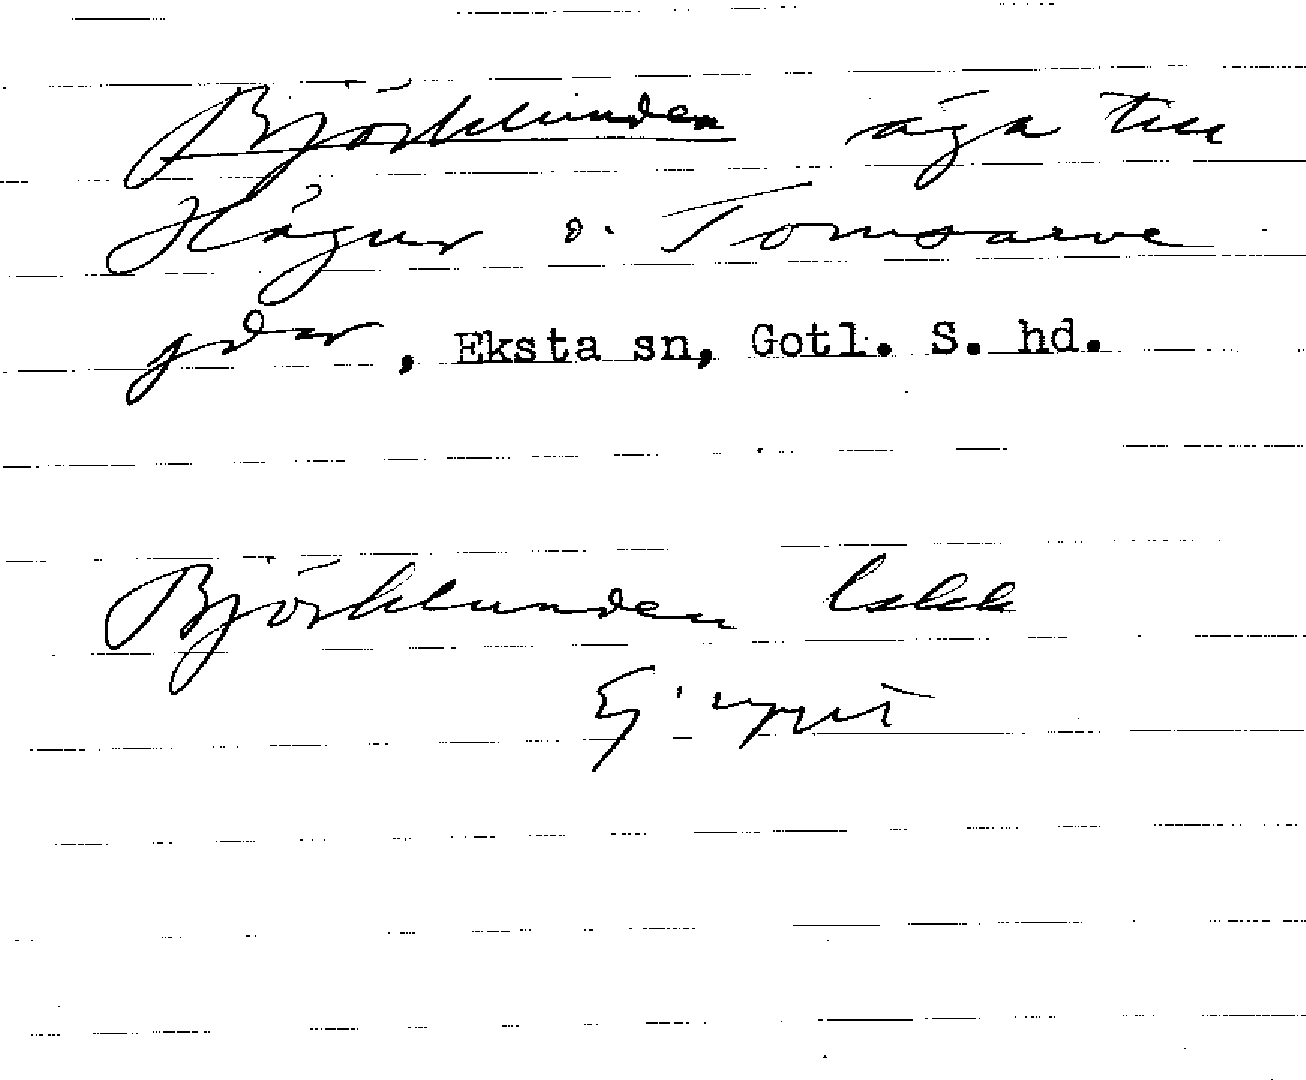 Björklunden äga till
Hägur o. Tomsarve
gdar, Eksta sn, Gotl. S. hd.
Björklunden Lskk
Ej nytt